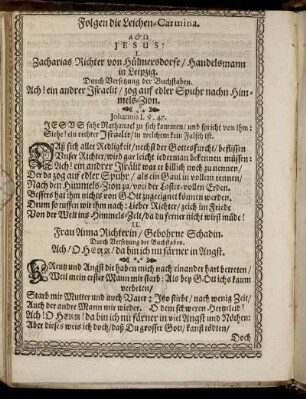 Folgen die Leichen-Carmina.
JESUS!
I.
Zacharias Richter von Hülmersdorff / Handelsmann
in Leipzig.
Durch Versetzung der Buchstaben.
Ach! ein andrer Israelit / zog auf edler Spuhr nachn Him-
mels-Zion.
Johannis I. v. 47.
JESUS sahe Nathanael zu sich kommen / und spricht von ihm:
Siehe! ein rechter Israelit / in welchem kein Falsch ist.
DAß sich aller Redligkeit / nechst der Gottesfurcht / beflissen
Unser Richter / wird gar leicht iederman bekennen müssen:
Ach! ein andrer Israelit war er billich noch zu nennen /
Der da zog auf edler Spuhr / als ein Gaul in vollem rennen /
Nach den Himmels-Zion zu / von der Laster-vollen Erden.
Bessers hat ihm nichts von GOtt zugeeignet können werden.
Drum so ruffen wir ihm nach: Lieber Richter / zeich im Friede
Von der Welt ins Himmels-Zelt / da du ferner nicht wirst müde!
II.
Frau Anna Richterin / Gebohrne Schadin.
Durch Versetzung der Buchstaben.
Ach / O HErr / da bin ich nu färner in Angst.
KReutz und Angst die haben mich nach einander hart betreten /
Weil mein erster Mann mir starb: Als bey GOtt ichs kaum
verbeten /
Starb mir Mutter und auch Vater: Itzo stiebt / nach wenig Zeit /
Auch der andre Mann mir wieder. O dem schweren Hertzeleid!
Ach! O HErr / da bin ich nu färner in viel Angst und Nöthen:
Aber dieses weis ich doch / daß Du grosser Gott / kanst tödten /
Doch